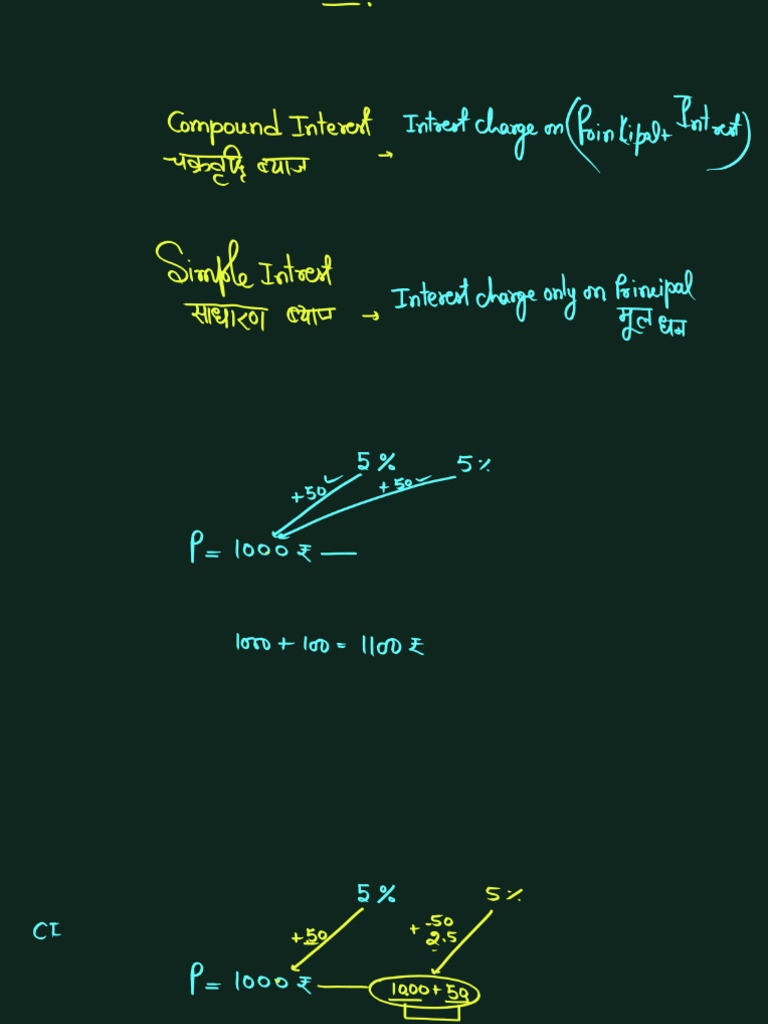 Compound Interest Intrest charge on (Prinkipal + Intrest)
चक्रवृद्धि ब्याज →
Simple Intrest
साधारण ब्याज → Interest charge only on Principal
मूल धन
5% 5%
+50 +50
P = 1000 ₹
1000 + 100 = 1100 ₹
5% 5%
CI +50 + 50
2.5
P = 1000 ₹ 1000 + 50